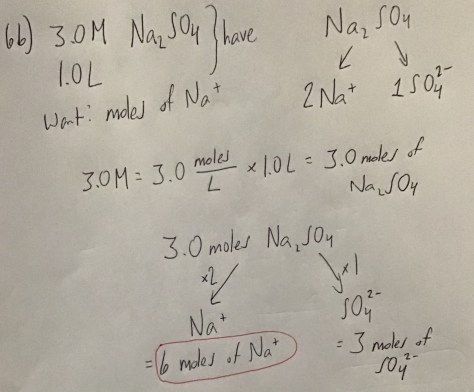 6b) 3.0M Na₂SO₄ } have
1.0L
Want: moles of Na⁺
Na₂SO₄
↙ ↘
2Na⁺ 1SO₄²⁻
3.0M = 3.0 moles/L × 1.0L = 3.0 moles of
Na₂SO₄
3.0 moles Na₂SO₄
×2 ↙ ↘ ×1
Na⁺ SO₄²⁻
= 6 moles of Na⁺
= 3 moles of
SO₄²⁻